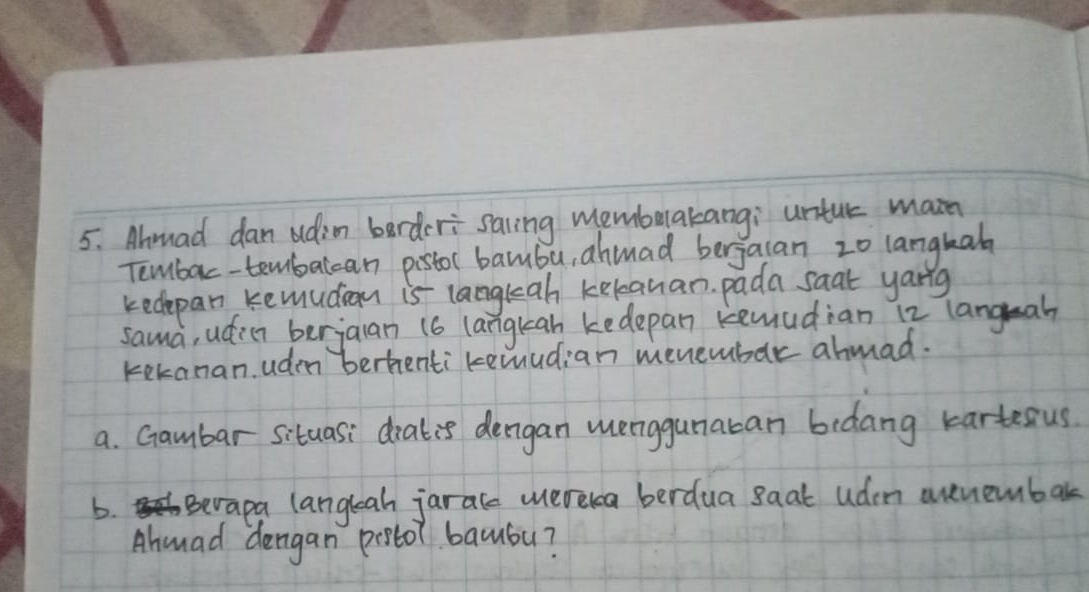 5. Ahmad dan udin berdiri saling membelakangi untuk main
Tembak-tembakan pistol bambu, ahmad berjalan 20 langkah
kedepan kemudian 15 langkah kekanan. pada saat yang
sama, udin berjalan 16 langkah kedepan kemudian 12 langkah
kekanan. udin berhenti kemudian menembak ahmad.
a. Gambar situasi diatis dengan menggunakan bidang kartesius.
b. Berapa langkah jarak mereka berdua saat udin menembak
Ahmad dengan pistol bambu?